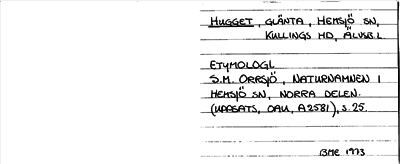 HUGGET, GLÄNTA, HEMSJÖ SN,
KULLINGS HD, ÄLVSB.L
ETYMOLOGI.
S.M. ORRSJÖ, NATURNAMNEN I
HEMSJÖ SN, NORRA DELEN.
(UPPSATS, OAU, A2581), S. 25.
BME 1973